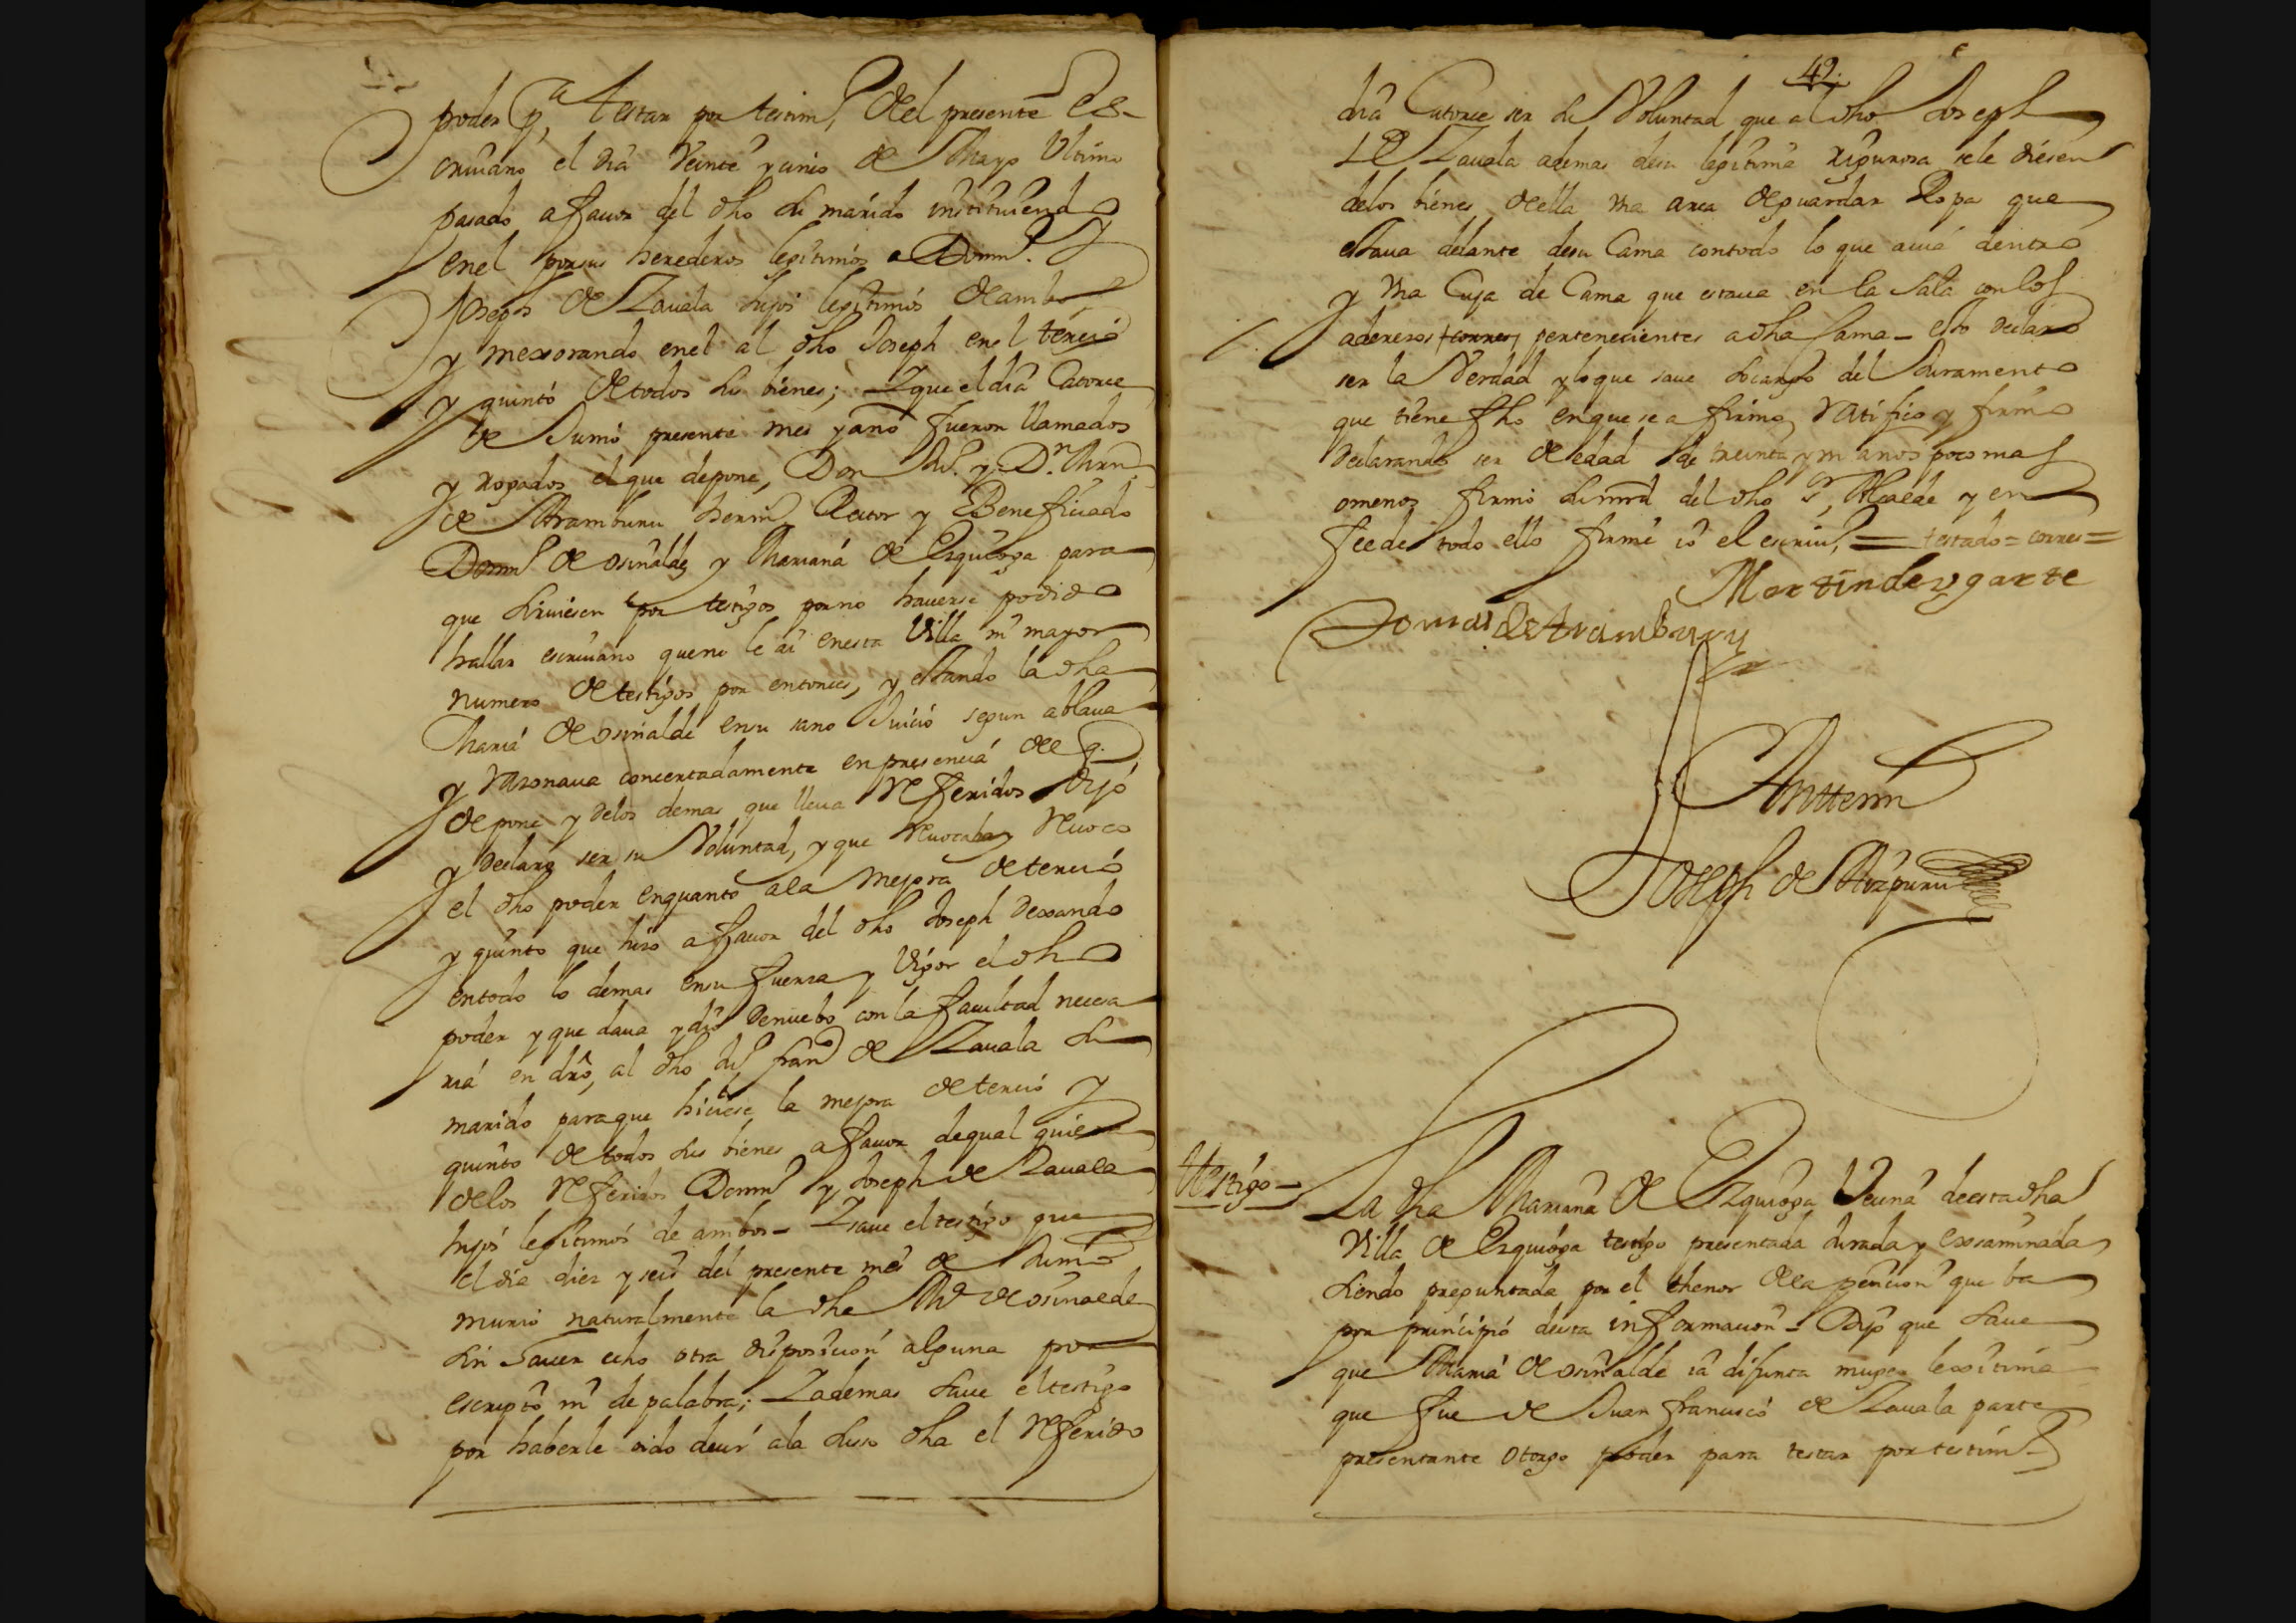 poder p.ª testar por testim.º del presente es-
criuano el dia veinte y cinco de Mayo Ultimo
pasado a fauor del dho su marido instituiendo
enel por sus herederos legitimos a Dom.º y
Joseph de Zauala hijos legitimos de ambos
y mexorando enel al dho Joseph en el tercio
y quinto de todos sus bienes; Y que el dia Catorce
de Junio presente mes y año fueron llamados
y rogados el que depone, Don Ju.º y D.n Mrn
de Aramburu herm.º Rector y Beneficiado
Dom.º de osinalde y Mariana de Ezquioga para
que siruiesen por testigos por no hauerse podido
hallar escriuano que no le ai en esta Villa ni mayor
numero de testigos por entonces, y estando la dha
Maria de osinalde en su sano Juicio segun ablaua
y rasonaua concertadamente en presencia del q.
depone y delos demas que lleua referidos dijo
y declaro ser su Voluntad, y que reuocaba y reuoco
el dho poder en quanto ala mejora de tercio
y quinto que hiso a fauor del dho Joseph dexando
en todo lo demas en su fuersa y vigor el dho
poder y que daua y dio denuebo con la facultad necesa
ria en dro, al dho Ju.º fran.co de Zauala su
marido para que hiciese la mejora de tercio y
quinto de todos sus bienes a fauor de qual quiera
de los referidos Dom.º y Joseph de Zauala
hijos legitimos de ambos - Y saue el testigo que
el dia diez y seis del presente mes de Junio
murio naturalmente la dha M.ª de osinalde
sin hauer echo otra disposicion alguna por
escripto ni de palabra; Y ademas saue el testigo
por haberle oido decir ala suso dha el referido
42.
dia Catorce ser su Voluntad que al dho Joseph
de Zauala ademas de su legitima rigurosa se le diesen
de los bienes de ella vna arca de guardar Ropa que
estaua delante de su Cama con todo lo que auia dentro
y vna Cuja de Cama que estaua en la sala con los
aderesos corres pertenecientes a dha Cama - esto declaro
ser la Verdad y lo que saue so cargo del Juramento
que tiene fho en que se afirmo, ratifico y firmo
declarando ser de edad de treinta y vn años poco mas
o menos firmo su mrd del dho S.r Alcalde y en
fee de todo ello firme io el escriu.º = testado = corres =
Martin de vgarte
Tomas de Aramburu
Antte mi
Joseph de Aizpuru
testigo -
La dha Mariana de Ezquioga Vecina de esta dha
Villa de Ezquioga testigo presentada Jurada y exsaminada
siendo preguntada por el thenor de la peticion que ba
por principio de esta informacion - Dijo que saue
que Maria de osinalde ia difunta muger lexitima
que fue de Juan francisco de Zauala parte
presentante otorgo poder para testar por testim.º